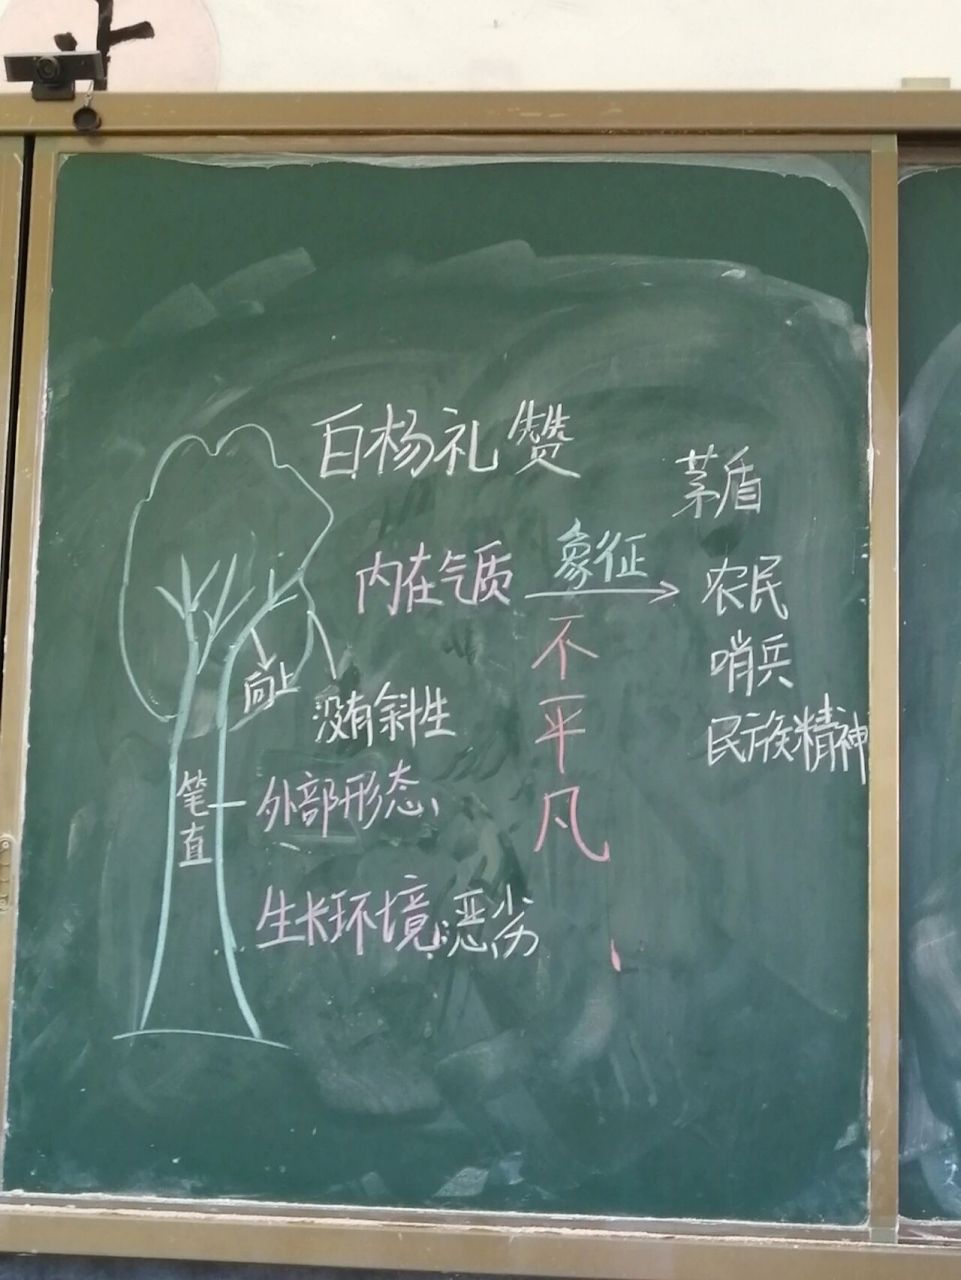 白杨礼赞
茅盾
内在气质
象征
农民
哨兵
民族精神
不平凡
向上
没有斜生
笔直
外部形态
生长环境:恶劣